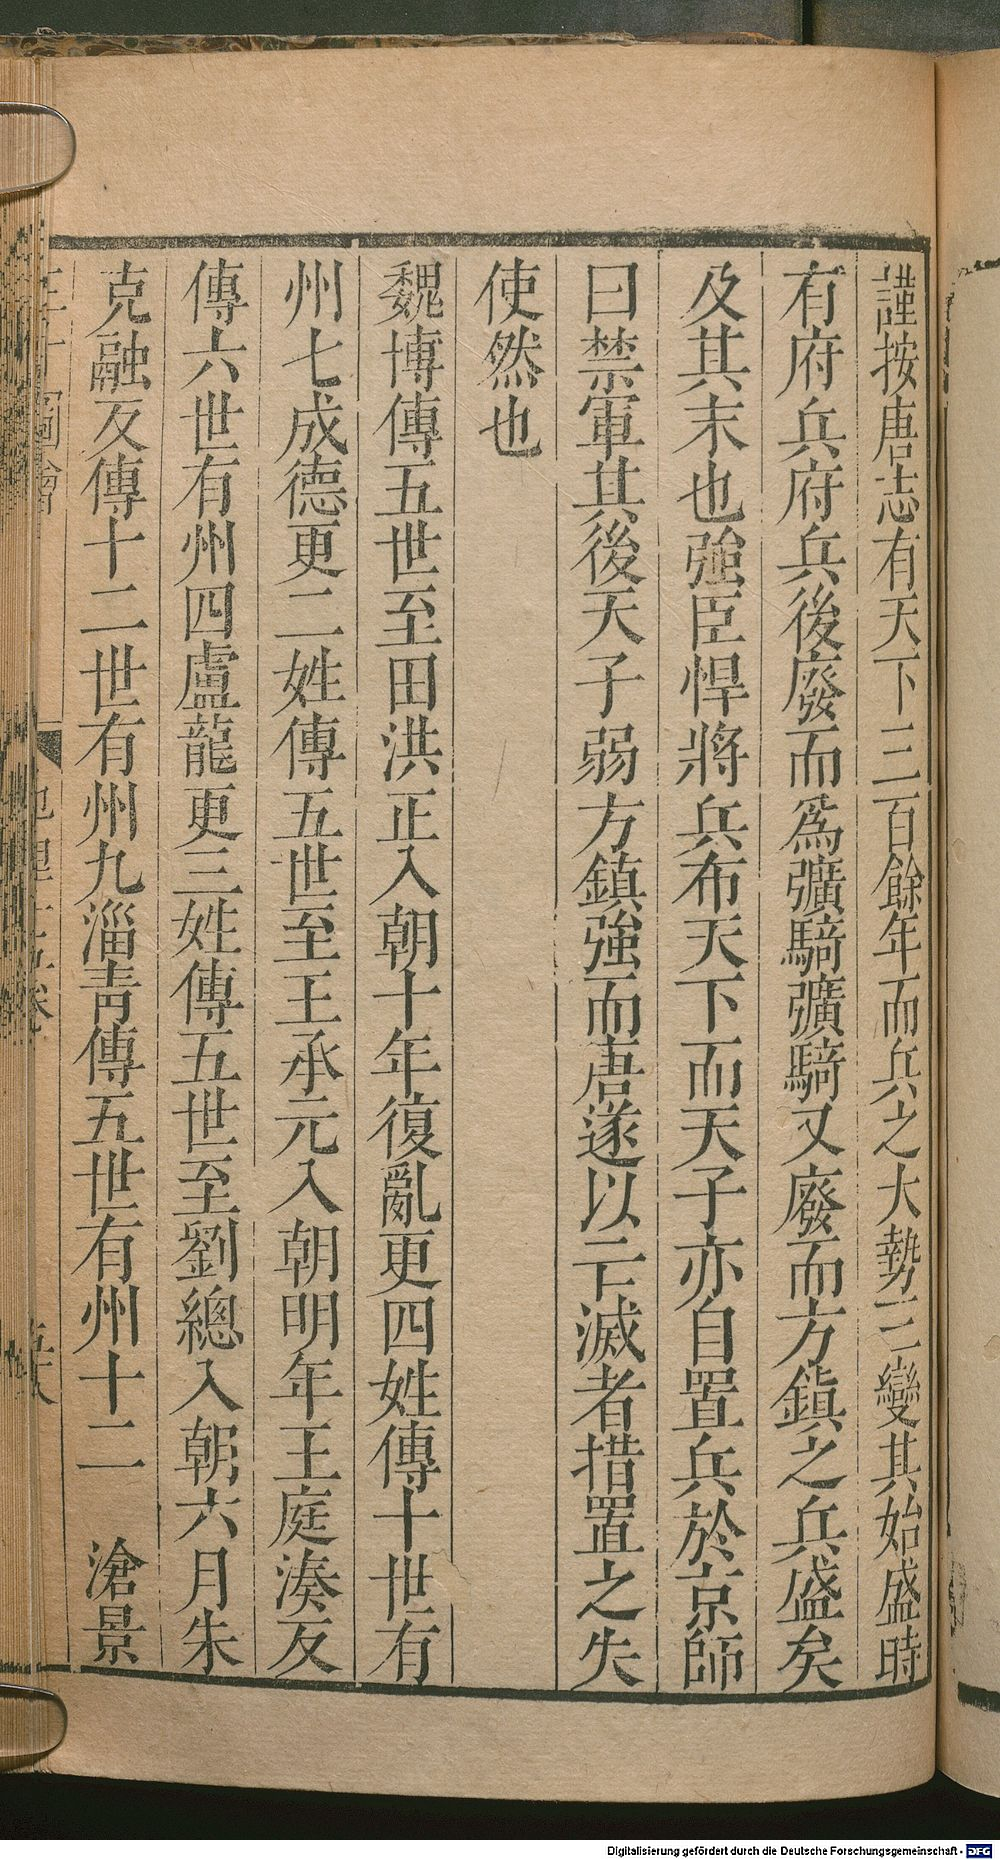 謹按唐志有天下三百餘年而兵之大勢三變其始盛時
有府兵府兵後廢而為彍騎彍騎又廢而方鎮之兵盛矣
及其末也強臣悍將兵布天下而天子亦自置兵於京師
曰禁軍其後天子弱方鎮強而唐遂以亡滅者措置之失
使然也
魏博傳五世至田洪正入朝十年復亂更四姓傳十世有
州七成德更二姓傳五世至王承元入朝明年王庭湊反
傳六世有州四盧龍更三姓傳五世至劉總入朝六月朱
克融反傳十二世有州九淄青傳五世有州十二 滄景
Digitalisierung gefördert durch die Deutsche Forschungsgemeinschaft - DFG